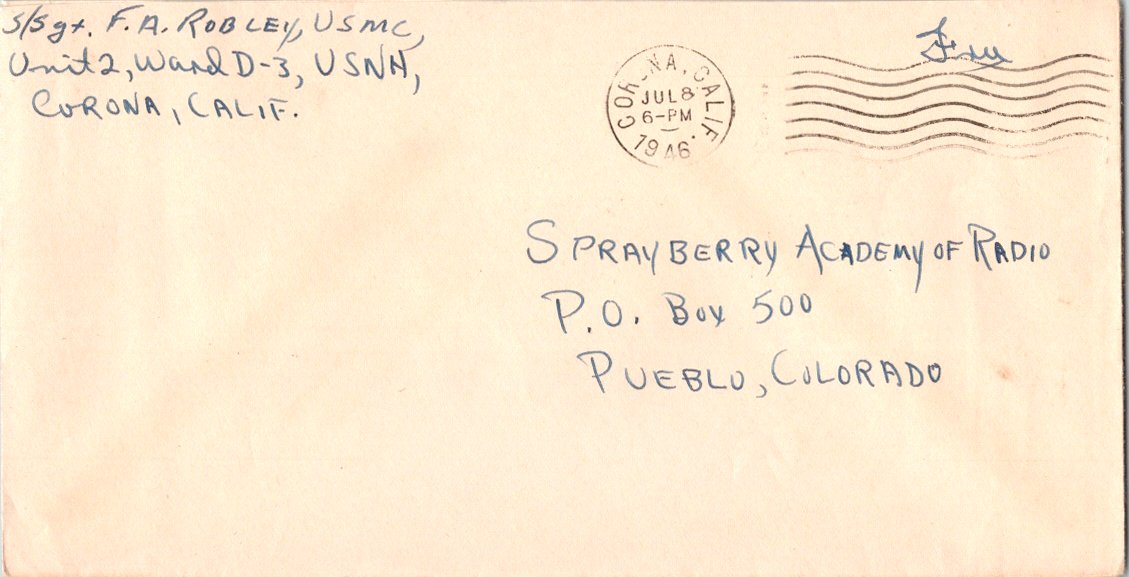 S/Sgt. F. A. ROBLEY, USMC,
Unit 2, Ward D-3, USNH,
CORONA, CALIF.
Free
CORONA, CALIF.
JUL 8
6-PM
1946
SPRAYBERRY ACADEMY OF RADIO
P.O. Box 500
PUEBLO, COLORADO